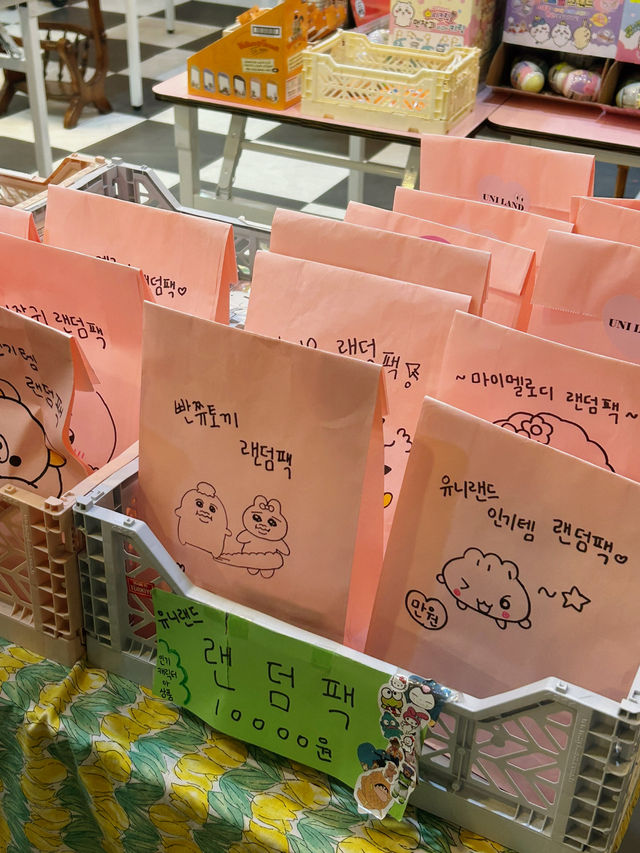 UNI LAND
랜덤팩♡
랜덤팩
인기템
랜덤팩
랜덤팩
~마이멜로디 랜덤팩~
UNI L
빤쮸토끼
랜덤팩
유니랜드
인기템 랜덤팩♡
만원
유니랜드
인기
캐릭터
상품
랜덤팩
10000원